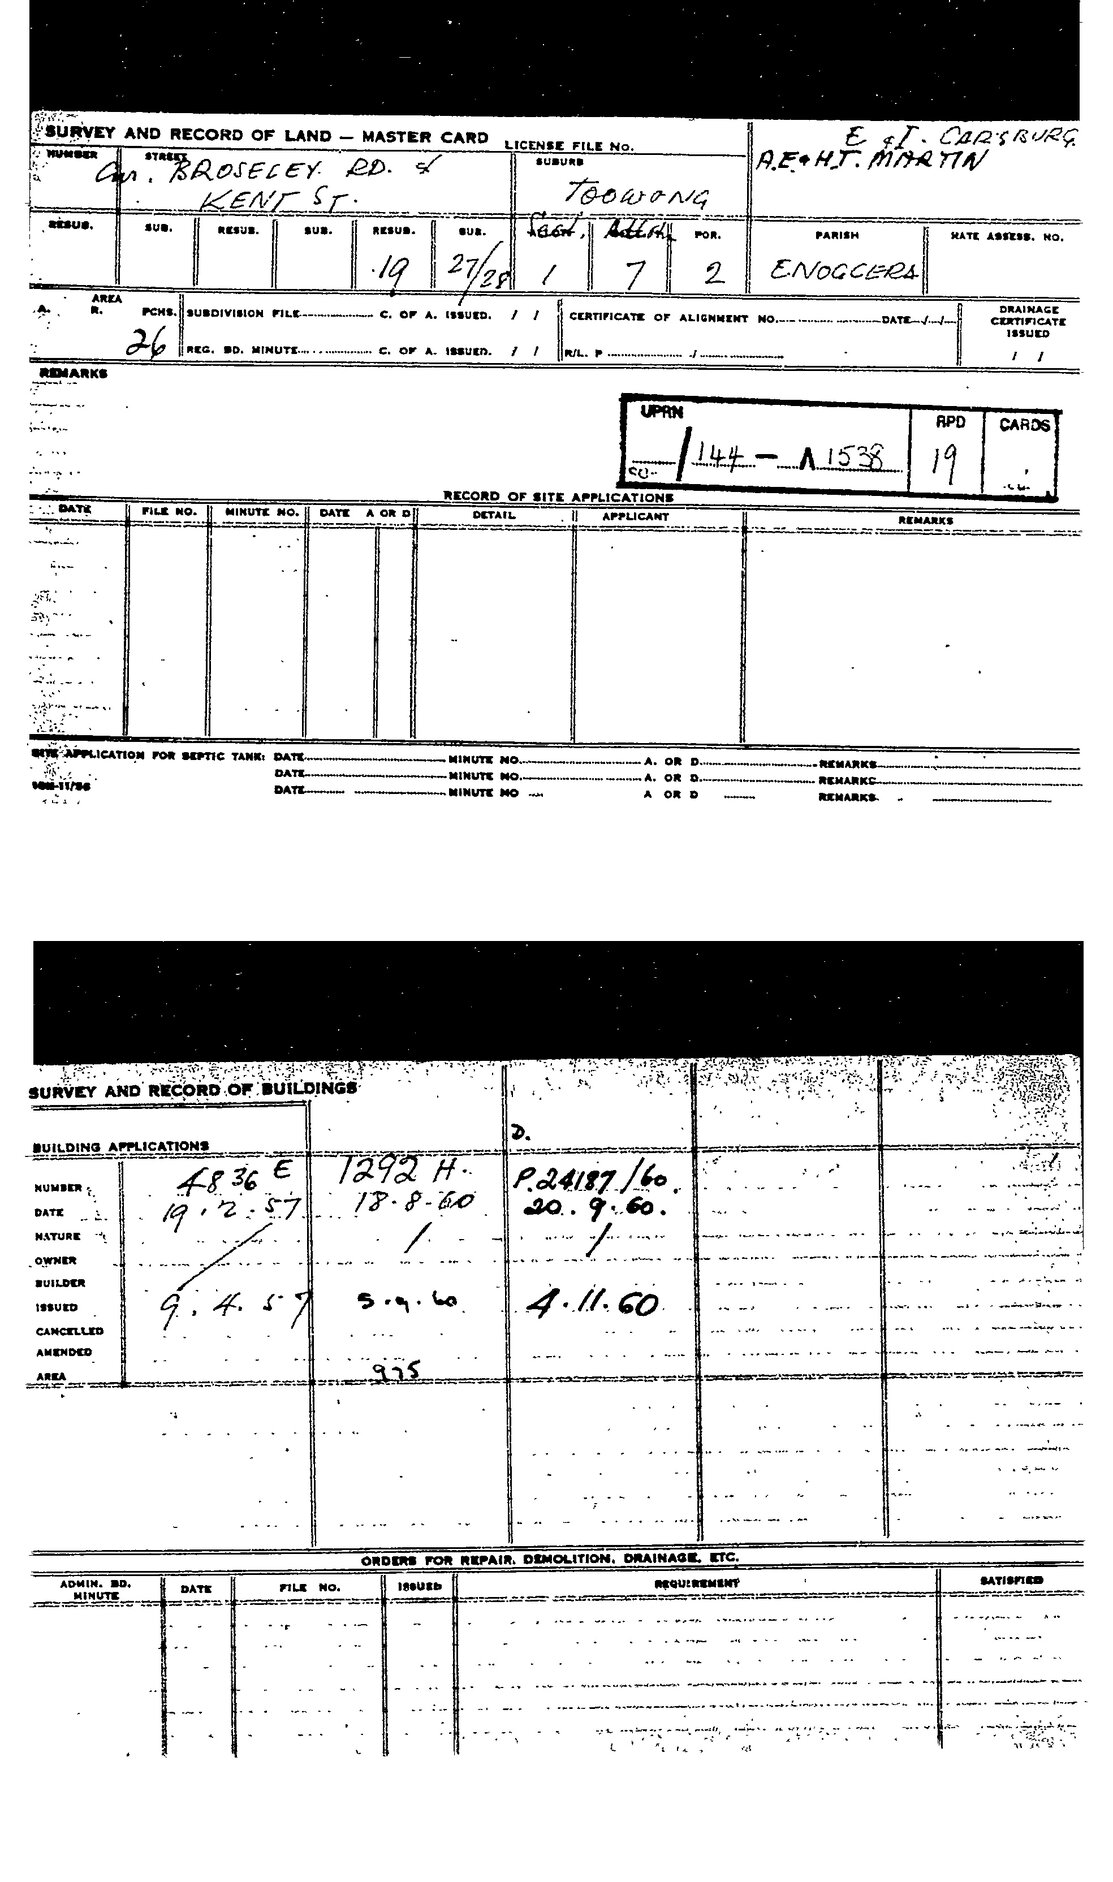 SURVEY AND RECORD OF LAND — MASTER CARD
LICENSE FILE No.
E & I. CARSBURG.
A.E & H.J. MARTIN
NUMBER STREET SUBURB
Cnr. BROSELEY. RD. &
KENT ST.
TOOWONG
RESUB. SUB. RESUB. SUB. RESUB. SUB. POR. PARISH RATE ASSESS. NO.
19 27/28 1 7 2 ENOGGERA
A. AREA R. PCHS.
26
SUBDIVISION FILE C. OF A. ISSUED. / /
CERTIFICATE OF ALIGNMENT NO. DATE / /
DRAINAGE CERTIFICATE ISSUED
REG. BD. MINUTE C. OF A. ISSUED. / /
R/L. P / / /
REMARKS
UPRN RPD CARDS
/144 — A1538 19
RECORD OF SITE APPLICATIONS
DATE FILE NO. MINUTE NO. DATE A OR D DETAIL APPLICANT REMARKS
SITE APPLICATION FOR SEPTIC TANK: DATE MINUTE NO. A. OR D. REMARKS
DATE MINUTE NO. A. OR D. REMARKS
DATE MINUTE NO A OR D REMARKS
SURVEY AND RECORD OF BUILDINGS
D.
BUILDING APPLICATIONS
NUMBER 4836 E 1292 H. P.24187/60.
DATE 19.2.57 18.8.60 20.9.60.
NATURE / /
OWNER
BUILDER
ISSUED 9.4.57 5.9.60 4.11.60
CANCELLED
AMENDED
AREA 975
ORDERS FOR REPAIR, DEMOLITION, DRAINAGE, ETC.
ADMIN. BD. MINUTE DATE FILE NO. ISSUED REQUIREMENT SATISFIED